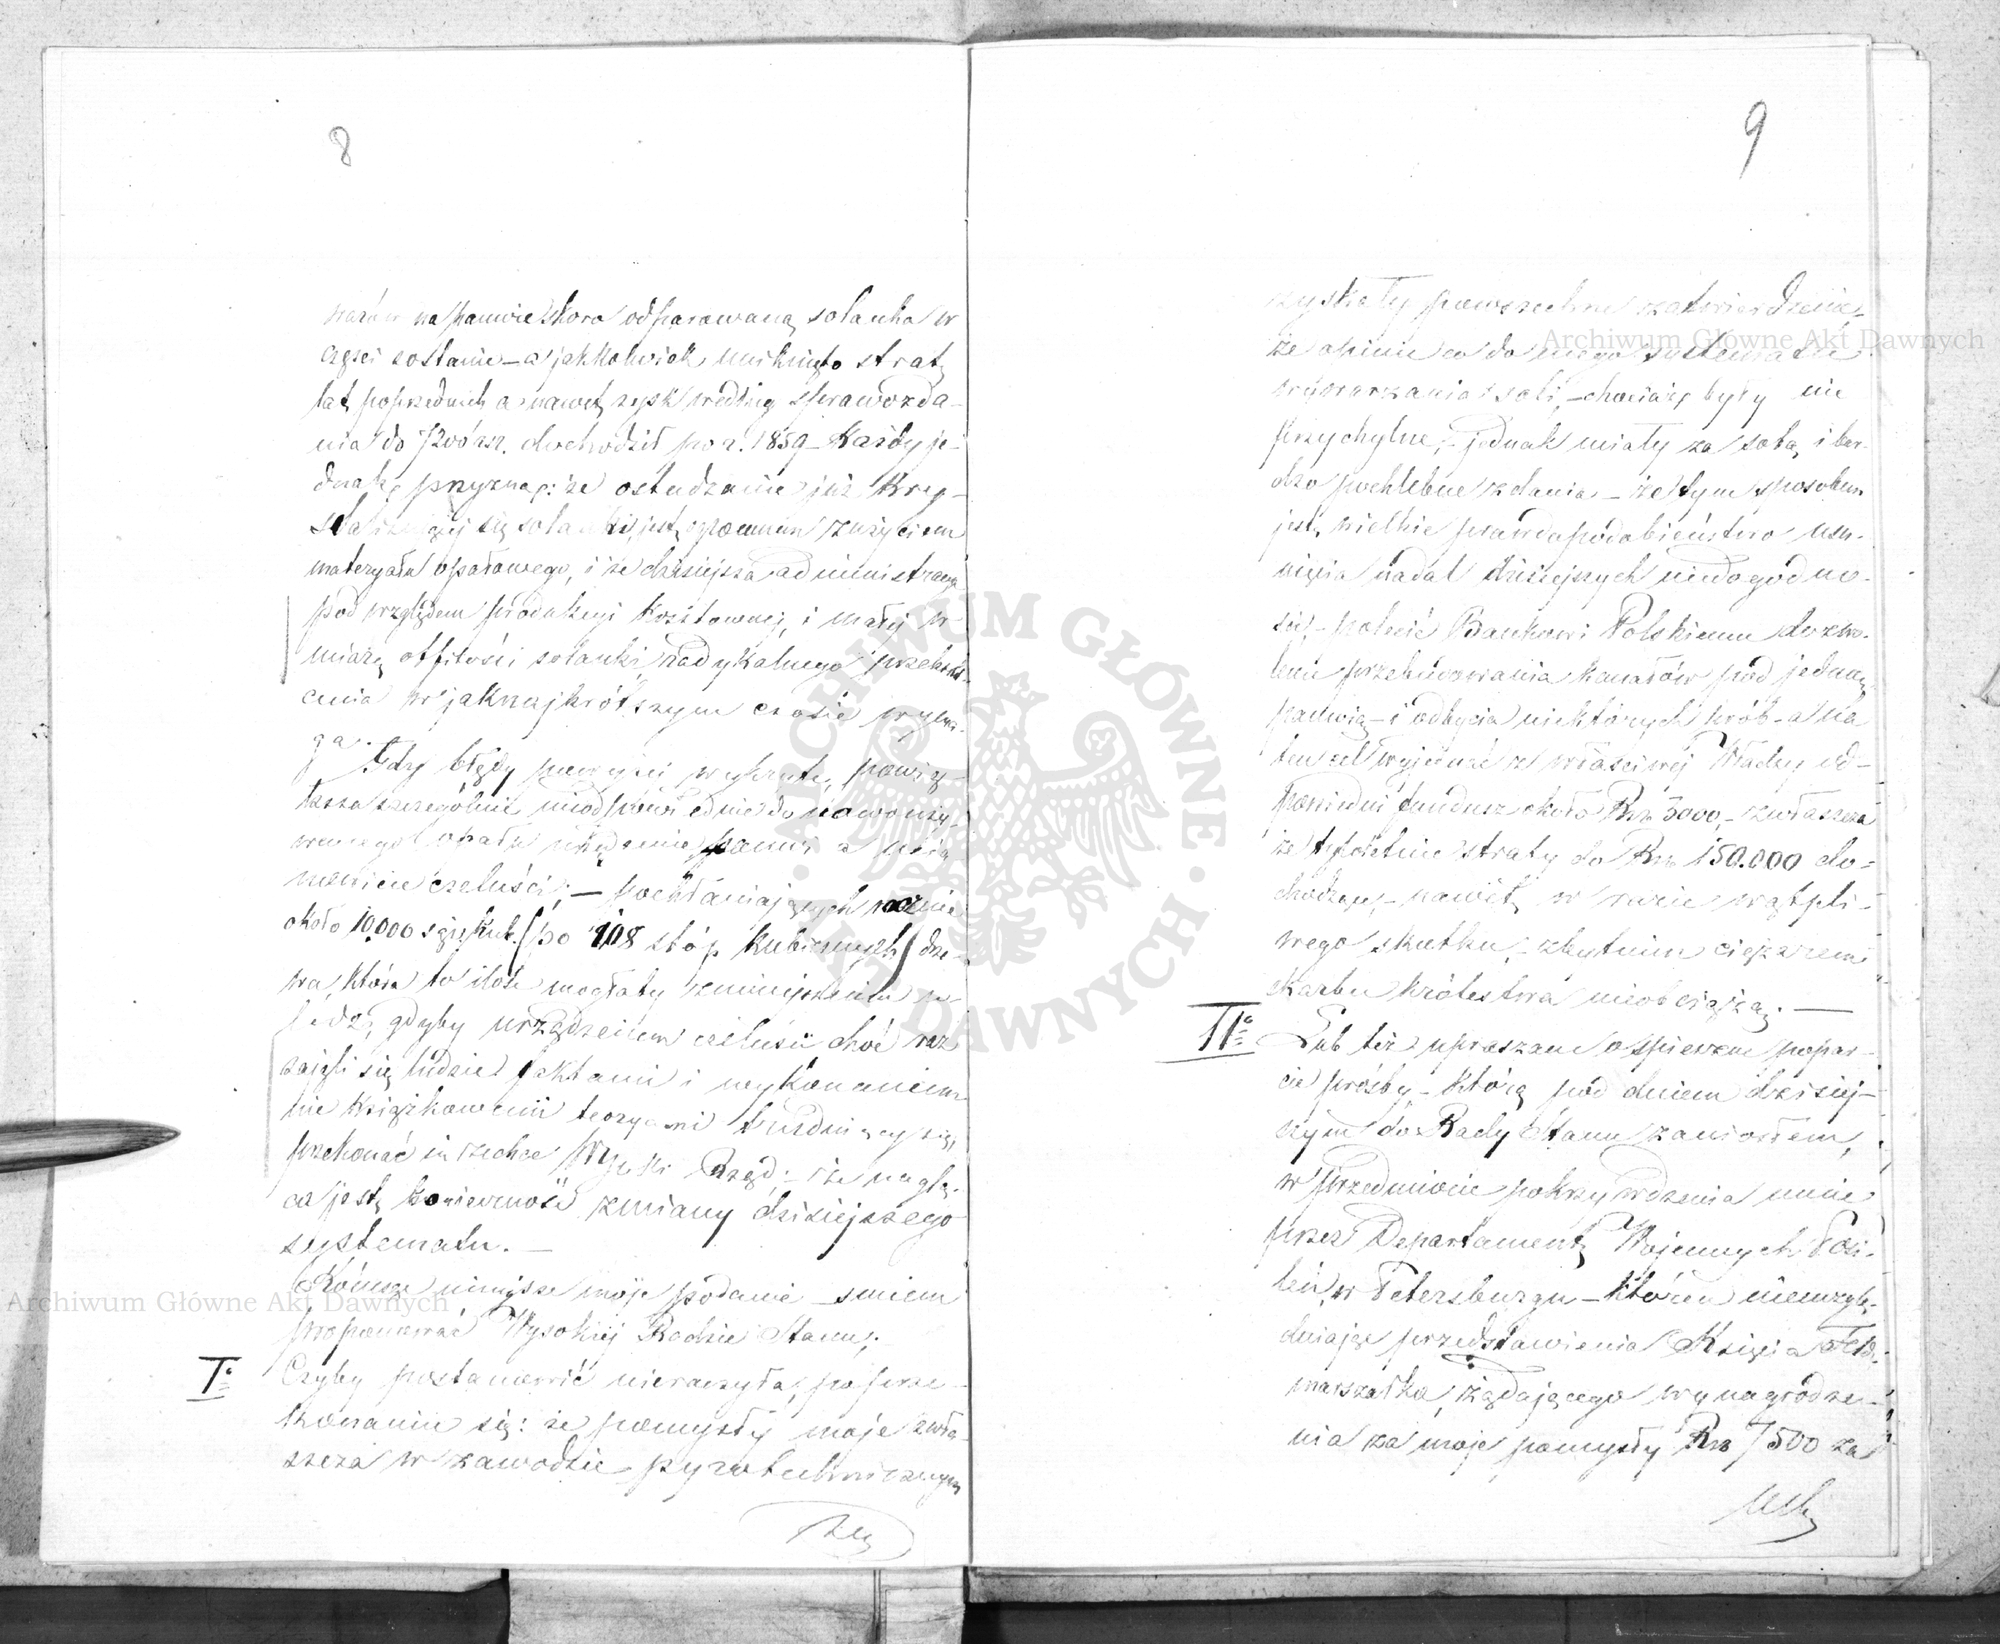 8
warów na panwie skoro odparowaną solanka w
części zostanie – a jakkolwiek uniknięto straty
lat poprzednich a nawet zysk według sprawozda-
nia do dochodził po r. 1859 – Każdy je-
dnak przyzna: że ostudzanie już krys-
talizującej się solanki jest ogromnem zużyciem
materyału opałowego, i że dzisiejsza administracya
pod względem produkcyi kosztownej, i małej w
miarę obfitości solanki, radykalnego przekształ-
cenia w jaknajkrótszym czasie wyma-
ga. Gdy błędy powyżej wykryte, powięk-
sza szczególnie nieodpowiednie do nowo uży-
wanego opału urządzenie panwi a
mowicie czeluści; – pochłaniających rocznie
około 10.000 sąż. kub. (po 108 stóp kubicznych) drze-
wa, która to ilość mogłaby zmniejszeniu u-
ledz, gdyby urządzeniem czeluści choć raz
zajęli się ludzie faktami i wykonaniem
nie książkowemi teoryami trudniący się,
przekonać się zechce Wysoki Rząd; – że naglą-
ca jest konieczność zmiany dzisiejszego
systematu. –
Kończąc niniejsze moje podanie – śmiem
proponować Wysokiej Radzie Stanu;
I° Czyby postanowić nieraczyła, po prze-
konaniu się: że pomysły moje zwła-
szcza w zawodzie pyrotechnicznym
9
zyskały powszechne zatwierdzenie,
że opinie co do mego systematu
wywarzania soli, – chociaż były nie
przychylne, – jednak miały za sobą i bar-
dzo pochlebne zdania – że tym sposobem
jest wielkie prawdopodobieństwo usu-
nięcia nadal dzisiejszych niedogodno-
ści, – polecić Bankowi Polskiemu dozwo-
lenie przebudowania kanałów pod jedną
panwią – i odbycia niektórych prób – a na
ten cel wyjednać z właściwej Władzy od-
powiedni fundusz około Rsr. 3000, – zwłaszcza
że tyloletnie straty do Rsr. 150.000 do-
chodzące, – nawet w razie wątpli-
wego skutku, – zbytnim ciężarem
Skarbu Królestwa nieobciążą. —
II° Lub też upraszam o spieszne popar-
cie prośby – którą pod dniem dzisiej-
szym do Rady Stanu zaniosłem,
w przedmiocie pokrzywdzenia mnie
przez Departament Wojennych Osie-
dleń w Petersburgu – który nieuwzglę-
dniając przedstawienia Księcia Feld-
marszałka, żądającego wynagrodze-
nia za moje pomysły Rsr. 7500 za